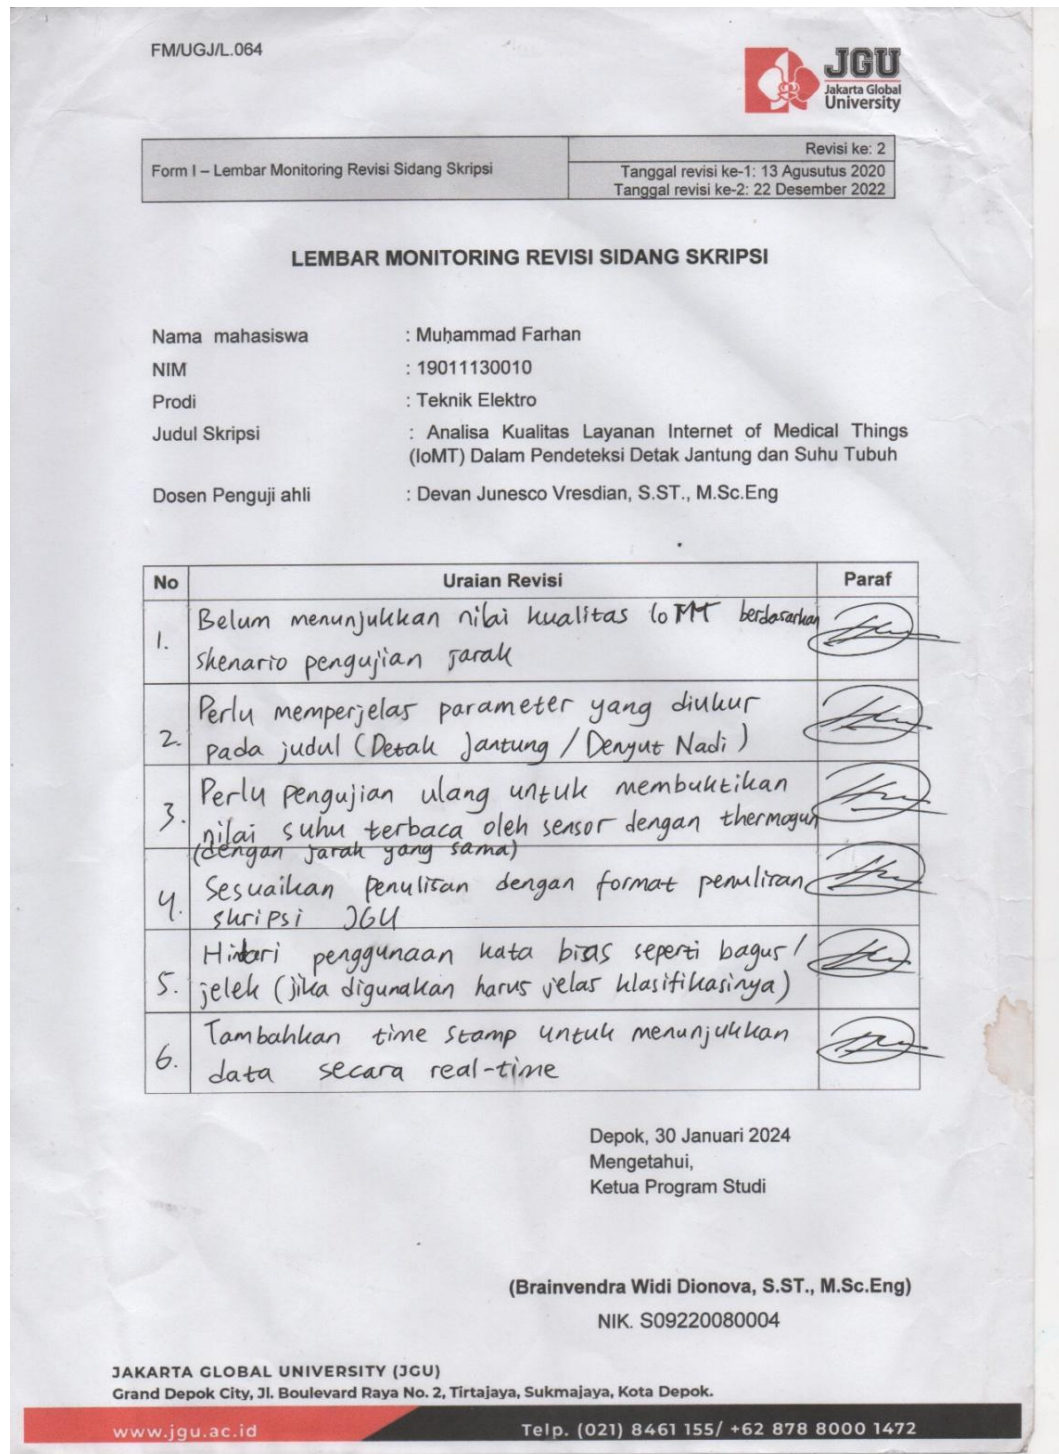 FM/UGJ/L.064
JGU
Jakarta Global
University
Form I – Lembar Monitoring Revisi Sidang Skripsi
Revisi ke: 2
Tanggal revisi ke-1: 13 Agusutus 2020
Tanggal revisi ke-2: 22 Desember 2022
LEMBAR MONITORING REVISI SIDANG SKRIPSI
Nama mahasiswa : Muhammad Farhan
NIM : 19011130010
Prodi : Teknik Elektro
Judul Skripsi : Analisa Kualitas Layanan Internet of Medical Things
(IoMT) Dalam Pendeteksi Detak Jantung dan Suhu Tubuh
Dosen Penguji ahli : Devan Junesco Vresdian, S.ST., M.Sc.Eng
No Uraian Revisi Paraf
1. Belum menunjukkan nilai kualitas IoMT berdasarkan
skenario pengujian jarak
2. Perlu memperjelas parameter yang diukur
pada judul (Detak Jantung / Denyut Nadi)
3. Perlu pengujian ulang untuk membuktikan
nilai suhu terbaca oleh sensor dengan thermogun
(dengan jarak yang sama)
4. Sesuaikan penulisan dengan format penulisan
skripsi JGU
5. Hindari penggunaan kata bias seperti bagus/
jelek (jika digunakan harus jelas klasifikasinya)
6. Tambahkan time stamp untuk menunjukkan
data secara real-time
Depok, 30 Januari 2024
Mengetahui,
Ketua Program Studi
(Brainvendra Widi Dionova, S.ST., M.Sc.Eng)
NIK. S09220080004
JAKARTA GLOBAL UNIVERSITY (JGU)
Grand Depok City, Jl. Boulevard Raya No. 2, Tirtajaya, Sukmajaya, Kota Depok.
www.jgu.ac.id Telp. (021) 8461 155/ +62 878 8000 1472